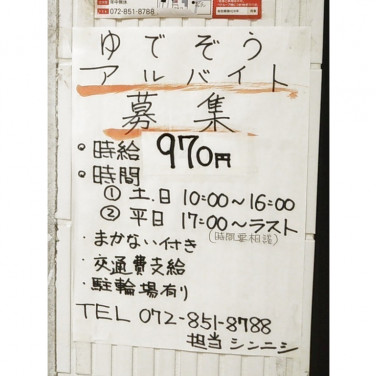 072-851-8788
ゆでぞう
アルバイト
募集
・時給 970円
・時間
① 土.日 10:00〜16:00
② 平日 17:00〜ラスト
(時間要相談)
・まかない付き
・交通費支給
・駐輪場有り
TEL 072-851-8788
担当 シンニシ